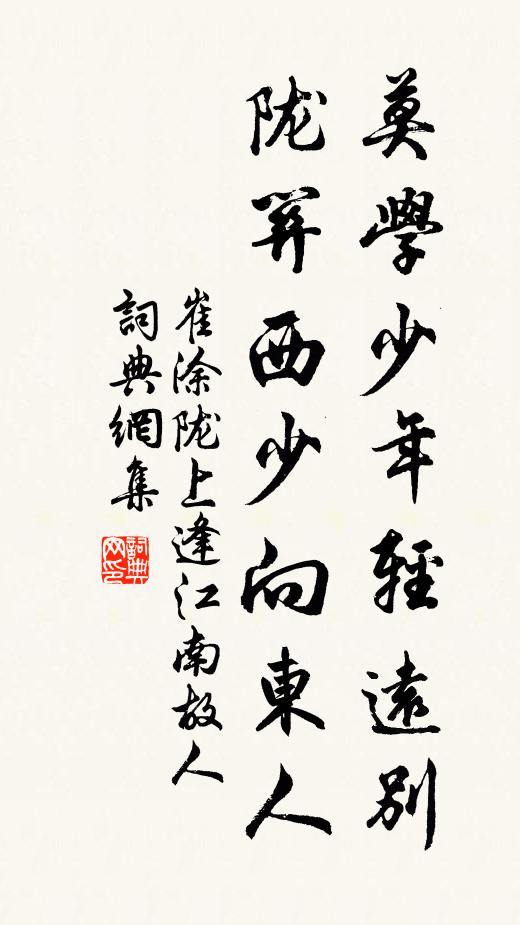 莫學少年輕遠別
陇關西少向東人
崔涂陇上逢江南故人
詞典網集
詞典网印